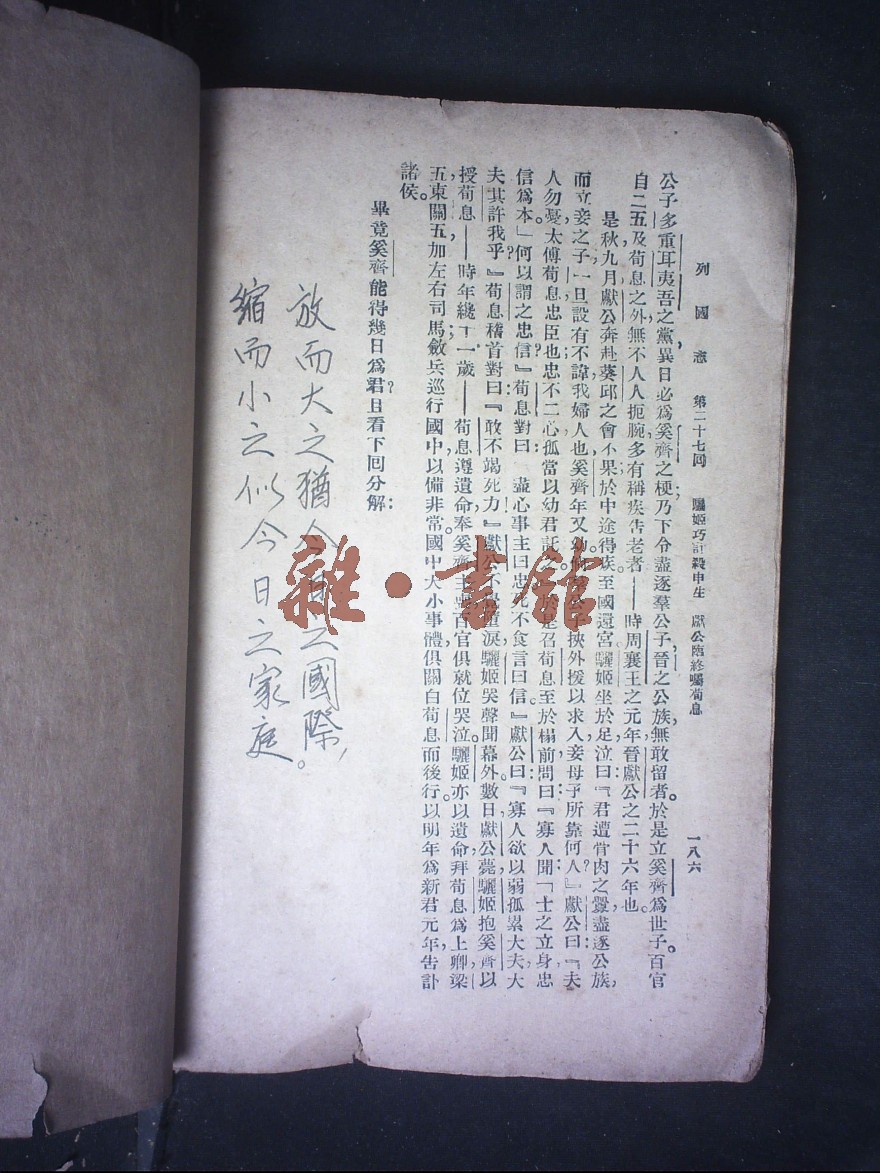 列國志 第二十七回 驪姬巧計殺申生 獻公臨終囑荀息 一八六
公子多重耳夷吾之黨,異日必爲奚齊之梗;乃下令盡逐羣公子,晉之公族,無敢留者。於是立奚齊爲世子。百官
自二五及荀息之外,無不人人扼腕,多有稱疾告老者——時周襄王之元年,晉獻公之二十六年也。
是秋九月,獻公奔赴葵邱之會,不果,於中途得疾,至國還宮。驪姬坐於足,泣曰:『君遭骨肉之釁,盡逐公族,
而立妾之子,一旦設有不諱,我婦人也,奚齊年又幼,倘羣公子挾外援以求入,妾母子所靠何人?』獻公曰:『夫
人勿憂,太傅荀息,忠臣也,忠不二心,孤當以幼君託之。』於是召荀息至於榻前,問曰:『寡人聞「士之立身,忠
信爲本。」何以謂之忠信?』荀息對曰:『盡心事主曰忠,死不食言曰信。』獻公曰:『寡人欲以弱孤累大夫,大
夫其許我乎?』荀息稽首對曰:『敢不竭死力!』獻公不覺墮淚,驪姬哭聲聞幕外。數日,獻公薨,驪姬抱奚齊以
授荀息——時年纔十一歲——荀息遵遺命,奉奚齊主喪,百官俱就位哭泣。驪姬亦以遺命,拜荀息爲上卿,梁
五東關五加左右司馬,斂兵巡行國中,以備非常。國中大小事體,俱關白荀息而後行。以明年爲新君元年,告訃
諸侯。
畢竟奚齊能得幾日爲君?且看下回分解:
放而大之猶今日之國際,
縮而小之似今日之家庭。
雜·書館